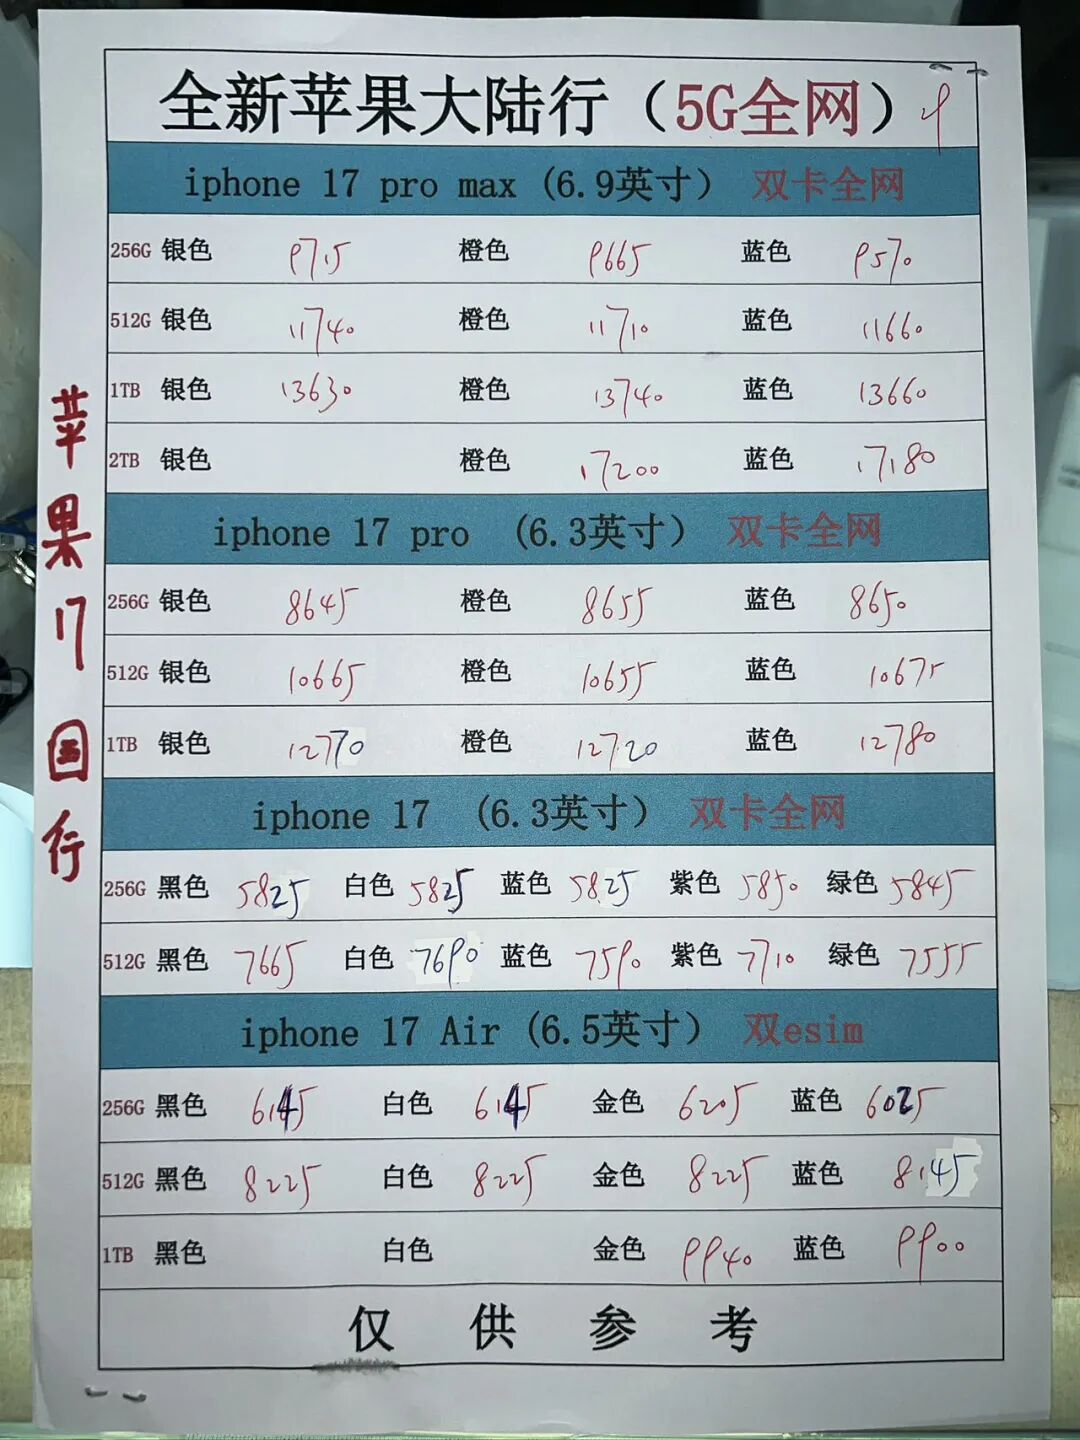 全新苹果大陆行（5G全网）
iphone 17 pro max (6.9英寸） 双卡全网
256G 银色 9715 橙色 9665 蓝色 9570
512G 银色 11740 橙色 11710 蓝色 11660
1TB 银色 13630 橙色 13740 蓝色 13660
2TB 银色 橙色 17200 蓝色 17180
iphone 17 pro (6.3英寸） 双卡全网
256G 银色 8645 橙色 8655 蓝色 8650
512G 银色 10665 橙色 10655 蓝色 10675
1TB 银色 12770 橙色 12720 蓝色 12780
iphone 17 (6.3英寸） 双卡全网
256G 黑色 5825 白色 5825 蓝色 5825 紫色 5850 绿色 5845
512G 黑色 7665 白色 7690 蓝色 7590 紫色 7710 绿色 7555
iphone 17 Air (6.5英寸） 双esim
256G 黑色 6145 白色 6145 金色 6205 蓝色 6025
512G 黑色 8225 白色 8225 金色 8225 蓝色 8145
1TB 黑色 白色 金色 9940 蓝色 9900
仅供参考
苹果17国行